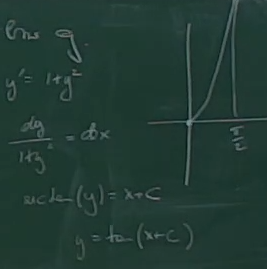 y' = 1+y²
dy/(1+y²) = dx
arctan(y) = x+C
y = tan(x+C)
π/2